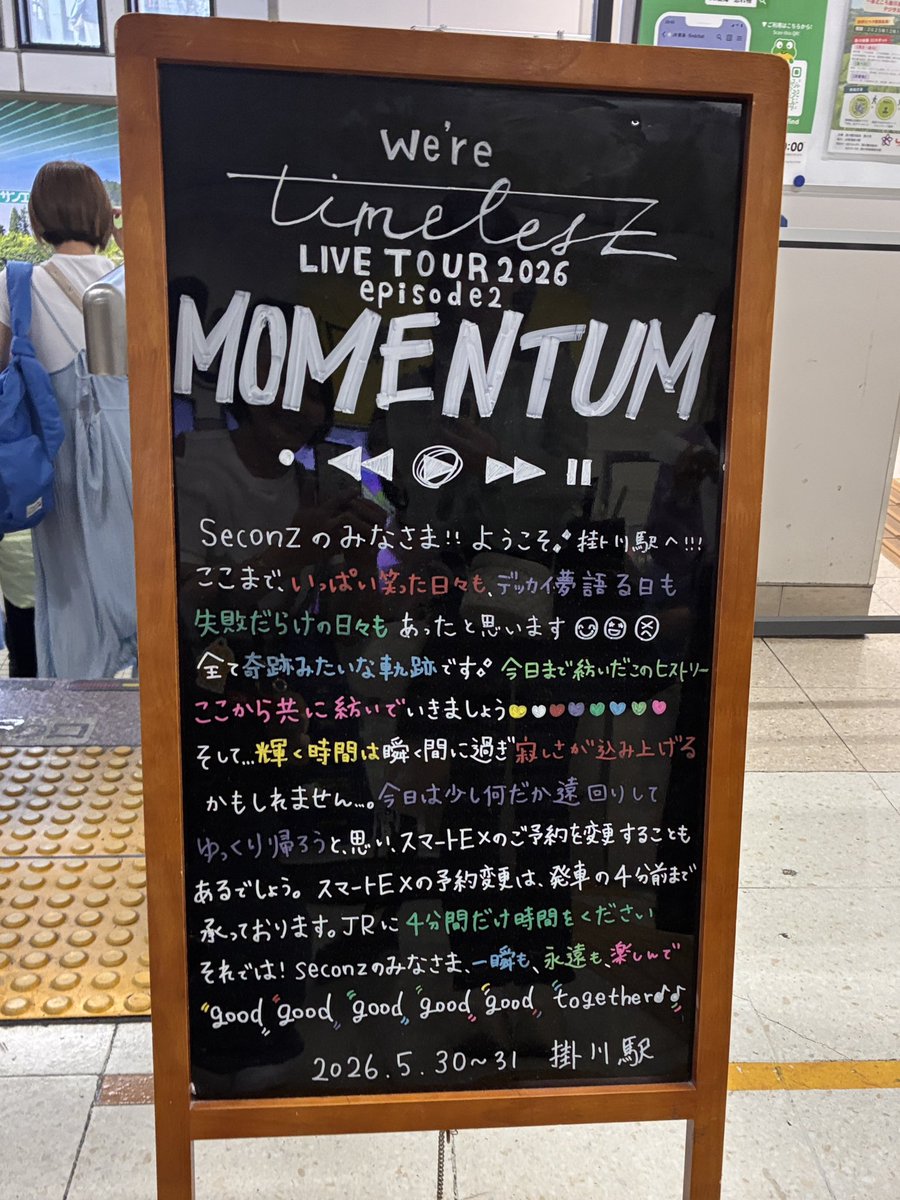 We're
timelesz
LIVE TOUR 2026
episode2
MOMENTUM
SeconZのみなさま!! ようこそ 掛川駅へ!!!
ここまで、いっぱい笑った日々も、デッカイ夢語る日も
失敗だらけの日々も あったと思います
全て奇跡みたいな軌跡です 今日まで紡いだこのヒストリー
ここから共に紡いでいきましょう
そして...輝く時間は瞬く間に過ぎ寂しさが込み上げる
かもしれません...。今日は少し何だか遠回りして
ゆっくり帰ろうと、思い、スマートEXのご予約を変更することも
あるでしょう。スマートEXの予約変更は、発車の4分前まで
承っております。JRに4分間だけ時間をください
それでは! seconzのみなさま、一瞬も、永遠も、楽しんで
"good" "good" "good" "good" "good" "together♪♪"
2026.5.30~31 掛川駅
サンエ
Scan this QR!